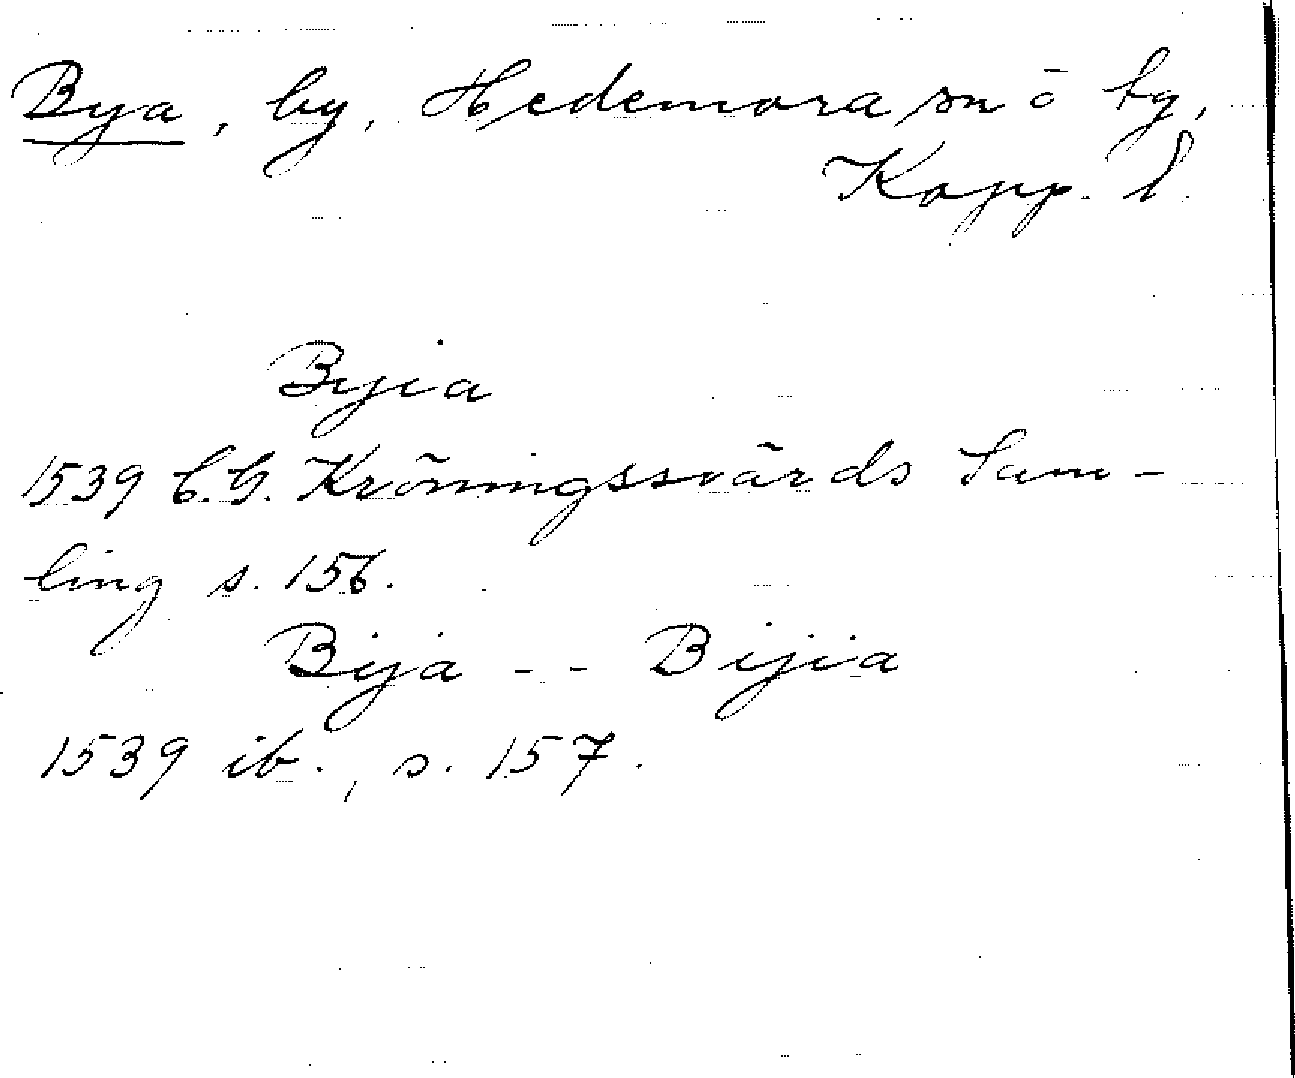 Bya, by, Hedemora sn o tg,
Kopp. l.
Byia
1539 C.G. Kröningssvärds Sam-
ling s. 156.
Bija -- Bijia
1539 ib., s. 157.